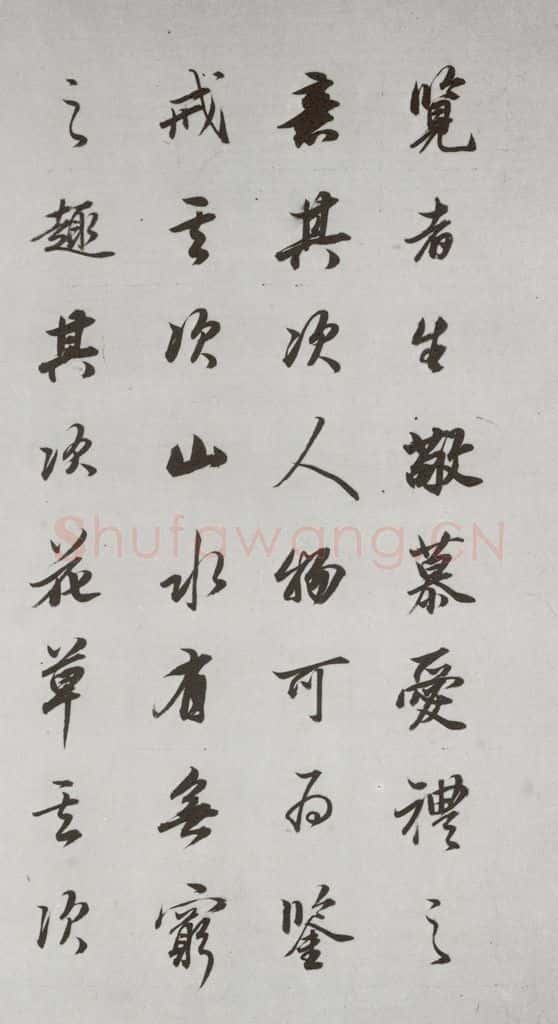 覧者生敬慕愛禮之
意其次人物可為鑒
戒其次山水有無窮
之趣其次花草其次
Shufawang.CN